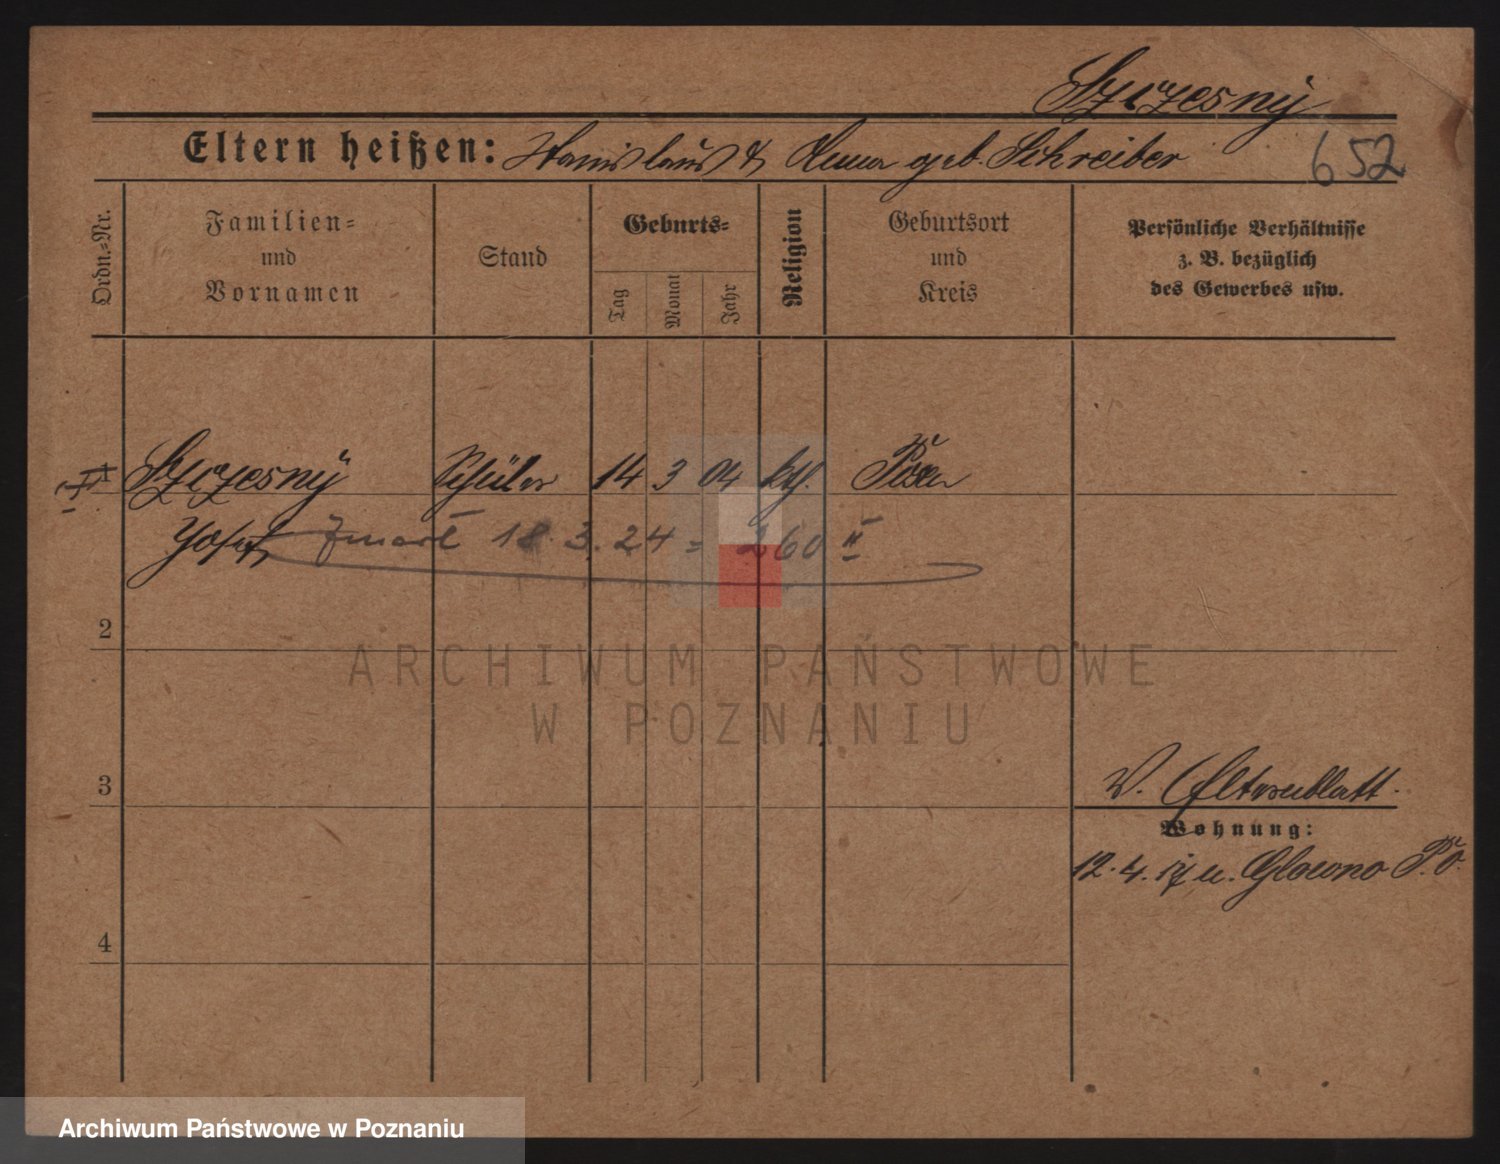 Szczesny
Eltern heißen: Stanislaus & Anna geb. Schreiber
652
Ordn.=Nr.
Familien=
und
Vornamen
Stand
Geburts=
Tag
Monat
Jahr
Religion
Geburtsort
und
Kreis
Persönliche Verhältnisse
z. B. bezüglich
des Gewerbes usw.
Szczesny Schüler 14 3 04 kth. Posen
Josef, zmarł 18.3.24 = 260 II
2
ARCHIWUM PAŃSTWOWE
W POZNANIU
3
W. Elternblatt.
Wohnung:
12.4.17 n. Glowno P.O.
4
Archiwum Państwowe w Poznaniu